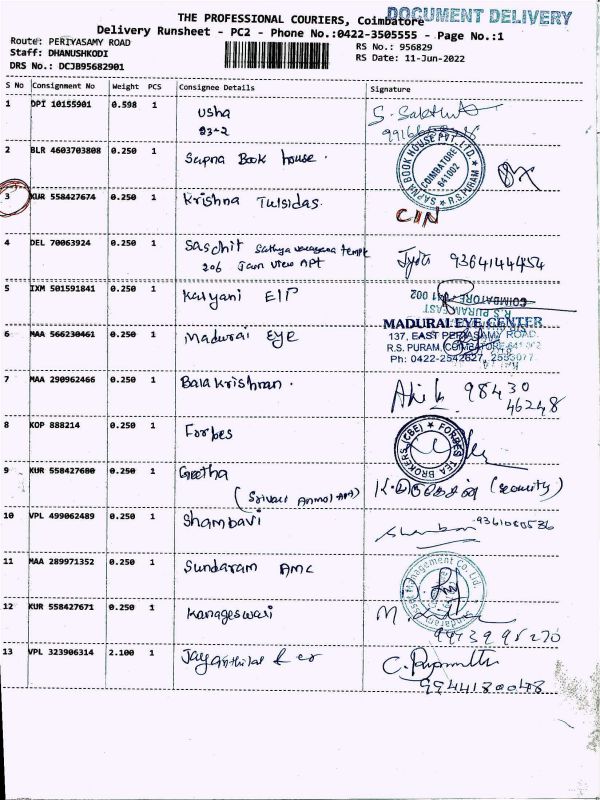 THE PROFESSIONAL COURIERS, Coimbatore
DOCUMENT DELIVERY
Delivery Runsheet - PC2 - Phone No.:0422-3505555 - Page No.:1
Route: PERIYASAMY ROAD
RS No.: 956829
Staff: DHANUSHKODI
RS Date: 11-Jun-2022
DRS No.: DCJB95682901
S No Consignment No Weight PCS Consignee Details Signature
1 DPI 10155901 0.598 1 Usha
2 BLR 4603703808 0.250 1 Sapna Book house.
SAPNA BOOK HOUSE PVT. LTD. COIMBATORE 641002 R.S. PURAM
3 KUR 558427674 0.250 1 Krishna Tulsidas.
4 DEL 70063924 0.250 1 Saschit Sathya narayana temple
206 Jain View APT
Jyoti 9364144454
5 IXM 501591841 0.250 1 Kalyani
R.S PURAM EAST
COIMBATORE 641 002
6 MAA 566230461 0.250 1 Madurai Eye
MADURAI EYE CENTER
137, EAST PERIYASAMY ROAD,
R.S. PURAM, COIMBATORE-641 002
Ph: 0422-2542627, 2553077
7 MAA 290962466 0.250 1 Balakrishnan. 98430
46248
8 KOP 888214 0.250 1 Forbes
FORBES TEA BROKERS (CBE)
9 KUR 558427680 0.250 1 Geetha
(Srivari Anmol APT)
(security)
10 VPL 499062489 0.250 1 Shambavi
9361080536
11 MAA 289971352 0.250 1 Sundaram AMC
Sundaram Asset Management Co. Ltd.
12 KUR 558427671 0.250 1 Kanageswari
13 VPL 323906314 2.100 1 Jayanthilal & co